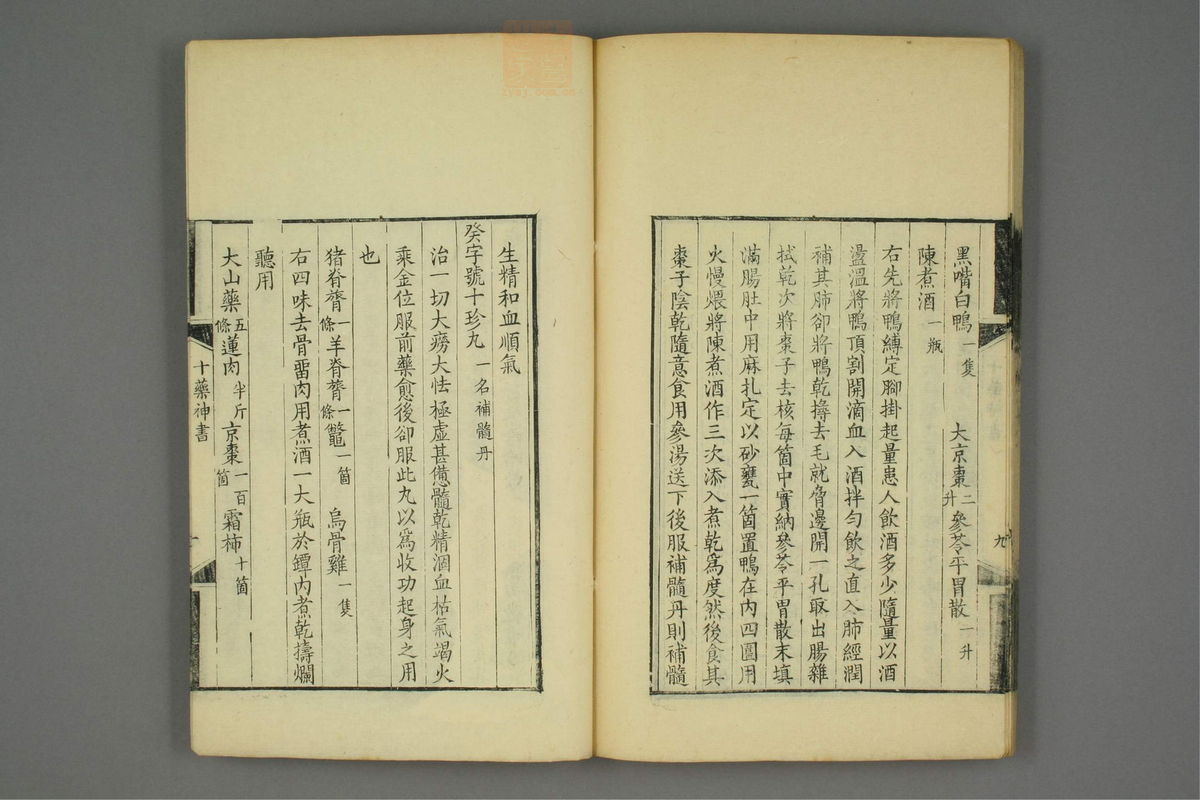 黑嘴白鴨一隻　大京棗二升參苓平胃散一升
陳煮酒一瓶
右先將鴨縛定腳掛起量患人飲酒多少隨量以酒
盪溫將鴨頂割開滴血入酒拌勻飲之直入肺經潤
補其肺卻將鴨乾撏去毛就脅邊開一孔取出腸雜
拭乾次將棗子去核每箇中實納參苓平胃散末填
滿腸肚中用麻扎定以砂甕一箇置鴨在內四圍用
火慢煨將陳煮酒作三次添入煮乾為度然後食其
棗子陰乾隨意食用參湯送下後服補髓丹則補髓
九
生精和血順氣
癸字號十珍丸一名補髓丹
治一切大癆大怯極虛甚憊髓乾精涸血枯氣竭火
乘金位服前藥愈後卻服此丸以為收功起身之用
也
猪脊膂一條羊脊膂一條鼈一箇　烏骨雞一隻
右四味去骨畱肉用煮酒一大瓶於鐔內煮乾擣爛
聽用
大山藥五條蓮肉半斤京棗一百箇霜柿十箇
十藥神書